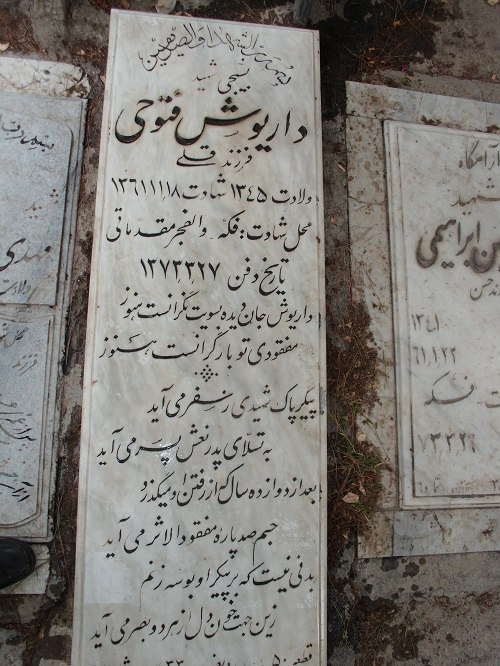 بسم رب الشهداء والصدیقین
بسیجی شهید
داریوش فتوحی
فرزند قلی
ولادت ۱۳۴۵ شهادت ۱۳۶۱/۱۱/۱۸
محل شهادت : فکه - والفجر مقدماتی
تاریخ دفن ۱۳۷۳/۳/۲۷
داریوش جان دیده بسویت نگرانست هنوز
مفقودی تو بار گرانست هنوز
پیکر پاک شهیدی ز سفر می آید
به تسلای پدر نعش پسر می آید
بعد از دوازده سال که از رفتن او میگذرد
جسم صد پاره مفقودالاثر می آید
بدنی نیست که بر پیکر او بوسه زنم
زین جهت خون دل از هر دو بصر می آید
قطعه ۵
آرامگاه
شهید
ابراهیمی
۶۱/۱/۲۲
مهدی
شهید